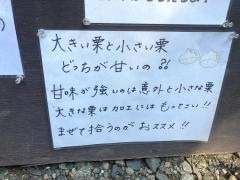 大きい栗と小さい栗
どっちが甘いの⁈
甘味が強いのは意外と小さな栗
大きな栗は加工にはもってこい!!
まぜて拾うのがおススメ!!